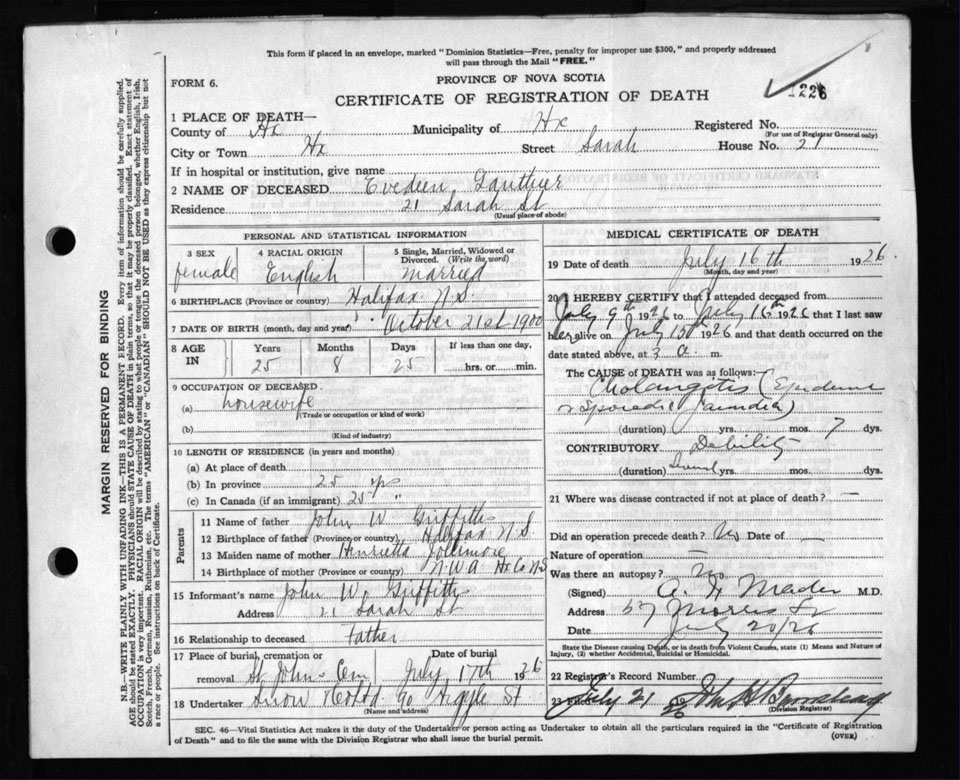 This form if placed in an envelope, marked "Dominion Statistics—Free, penalty for improper use $300," and properly addressed
will pass through the Mail "FREE."
FORM 6.
PROVINCE OF NOVA SCOTIA
CERTIFICATE OF REGISTRATION OF DEATH
1226
1 PLACE OF DEATH—
County of Hx Municipality of Hx Registered No.
(For use of Registrar General only)
City or Town Hx Street Sarah House No. 21
If in hospital or institution, give name
2 NAME OF DECEASED Evedeen Gauthier
Residence 21 Sarah St
(Usual place of abode)
PERSONAL AND STATISTICAL INFORMATION
3 SEX 4 RACIAL ORIGIN 5 Single, Married, Widowed or Divorced. (Write the word)
female English Married
6 BIRTHPLACE (Province or country) Halifax N.S.
7 DATE OF BIRTH (month, day and year) October 21st 1900
8 AGE IN Years Months Days If less than one day,
25 8 25 hrs. or min.
9 OCCUPATION OF DECEASED
(a) housewife
(Trade or occupation or kind of work)
(b)
(Kind of industry)
10 LENGTH OF RESIDENCE (in years and months)
(a) At place of death
(b) In province 25 yrs
(c) In Canada (if an immigrant) 25 "
Parents
11 Name of father John W Griffiths
12 Birthplace of father (Province or country) Halifax N.S.
13 Maiden name of mother Henrietta Jollimore
14 Birthplace of mother (Province or country) N.W.A Hx Co N.S
15 Informant's name John W. Griffiths
Address 21 Sarah St
16 Relationship to deceased Father
17 Place of burial, cremation or removal Date of burial
St. Johns Cem July 17th 1926
18 Undertaker Snow Co Ltd 90 Argyle St
(Name and address)
MEDICAL CERTIFICATE OF DEATH
19 Date of death July 16th 1926
(Month, day and year)
20 I HEREBY CERTIFY that I attended deceased from
July 9th 1926 to July 16th 1926 that I last saw
her alive on July 15th 1926 and that death occurred on
date stated above, at 3 a. m.
The CAUSE OF DEATH was as follows:
Cholangitis (Epidemic
or Sporadic Jaundice)
(duration) yrs. mos. 7 dys.
CONTRIBUTORY Debility
(duration) Several yrs. mos. dys.
21 Where was disease contracted if not at place of death? —
Did an operation precede death? No Date of —
Nature of operation —
Was there an autopsy? No
(Signed) A. H Mader M.D.
Address 57 Morris St
Date July 20/26
State the Disease causing Death, or in death from Violent Causes, state (1) Means and Nature of
Injury, (2) whether Accidental, Suicidal or Homicidal.
22 Registrar's Record Number
23 Filed July 21 26
(Division Registrar)
SEC. 46—Vital Statistics Act makes it the duty of the Undertaker or person acting as Undertaker to obtain all the particulars required in the "Certificate of Registration
of Death" and to file the same with the Division Registrar who shall issue the burial permit.
(OVER)
MARGIN RESERVED FOR BINDING
N.B.—WRITE PLAINLY WITH UNFADING INK—THIS IS A PERMANENT RECORD. Every item of information should be carefully supplied.
AGE should be stated EXACTLY. PHYSICIANS should STATE CAUSE OF DEATH in plain terms, so that it may be properly classified. Exact statement of
OCCUPATION is very important. RACIAL ORIGIN will be described by stating to what people or tongue the deceased person belonged, whether English, Irish,
Scotch, French, German, Russian, Ruthenian, etc. The terms "AMERICAN" or "CANADIAN" SHOULD NOT BE USED as they express citizenship but not
a race or people. See instructions on back of Certificate.